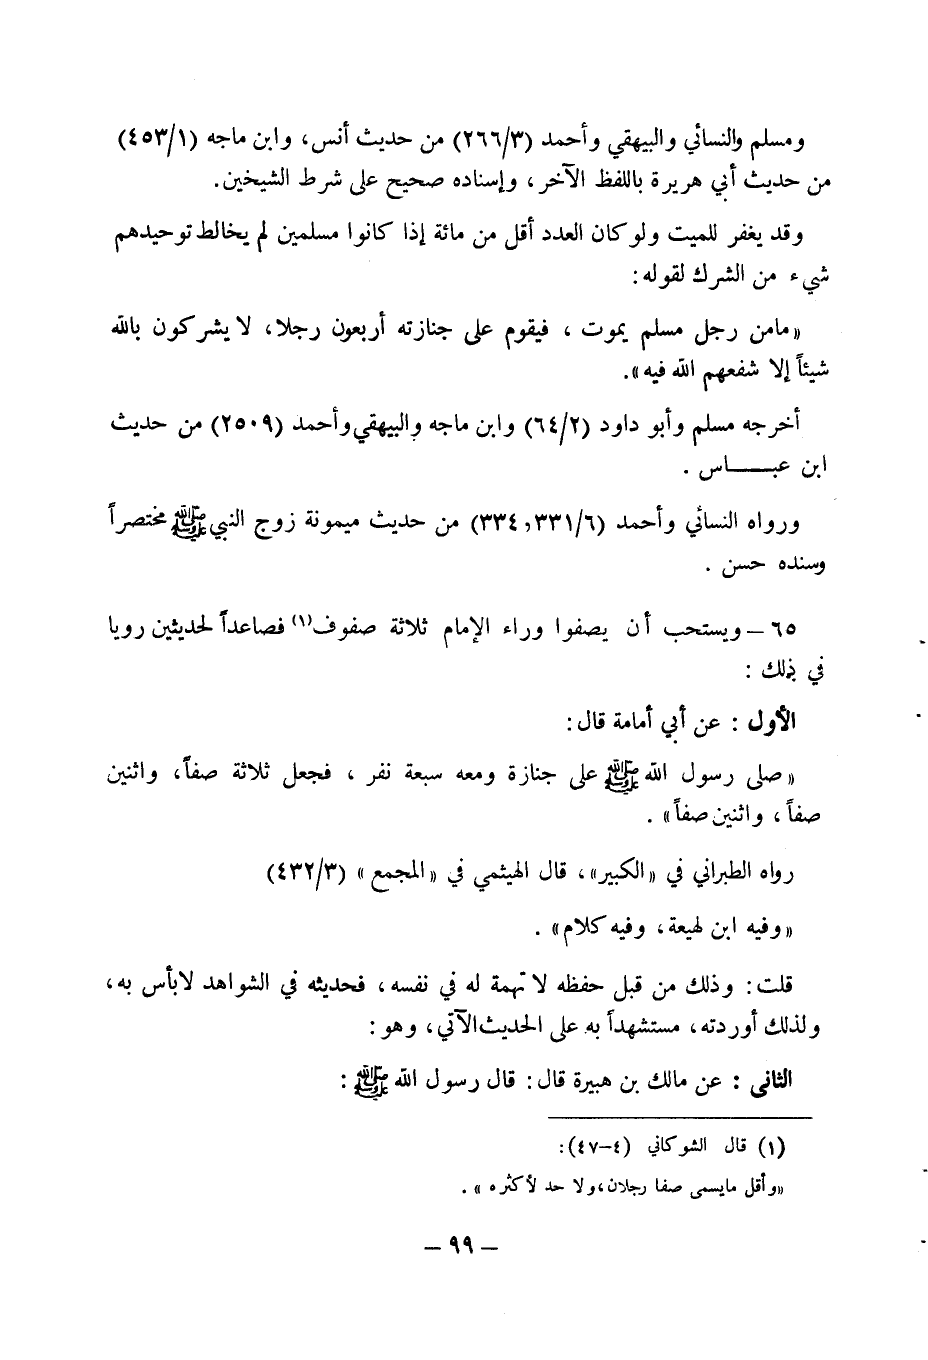 ومسلم والنسائي والبيهقي وأحمد (٢٦٦/٣) من حديث أنس، وابن ماجه (٤٥٣/١)
من حديث أبي هريرة باللفظ الآخر، وإسناده صحيح على شرط الشيخين.
وقد يغفر للميت ولو كان العدد أقل من مائة إذا كانوا مسلمين لم يخالط توحيدهم
شيء من الشرك لقوله:
«مامن رجل مسلم يموت، فيقوم على جنازته أربعون رجلا، لا يشركون بالله
شيئاً إلا شفعهم الله فيه».
أخرجه مسلم وأبو داود (٦٤/٢) وابن ماجه والبيهقي وأحمد (٢٥٠٩) من حديث
ابن عبـــــاس.
ورواه النسائي وأحمد (٣٣١/٦, ٣٣٤) من حديث ميمونة زوج النبي ﷺ مختصراً
وسنده حسن.
٦٥ – ويستحب أن يصفوا وراء الإمام ثلاثة صفوف(١) فصاعداً لحديثين رويا
في ذلك:
الأول: عن أبي أمامة قال:
«صلى رسول الله ﷺ على جنازة ومعه سبعة نفر، فجعل ثلاثة صفاً، واثنين
صفاً، واثنين صفاً».
رواه الطبراني في «الكبير»، قال الهيثمي في «المجمع» (٤٣٢/٣)
«وفيه ابن لهيعة، وفيه كلام».
قلت: وذلك من قبل حفظه لا تهمة له في نفسه، فحديثه في الشواهد لابأس به،
ولذلك أوردته، مستشهداً به على الحديث الآتي، وهو:
الثاني: عن مالك بن هبيرة قال: قال رسول الله ﷺ:
(١) قال الشوكاني (٤–٤٧):
«وأقل مايسمى صفا رجلان، ولا حد لأكثره».
– ٩٩ –